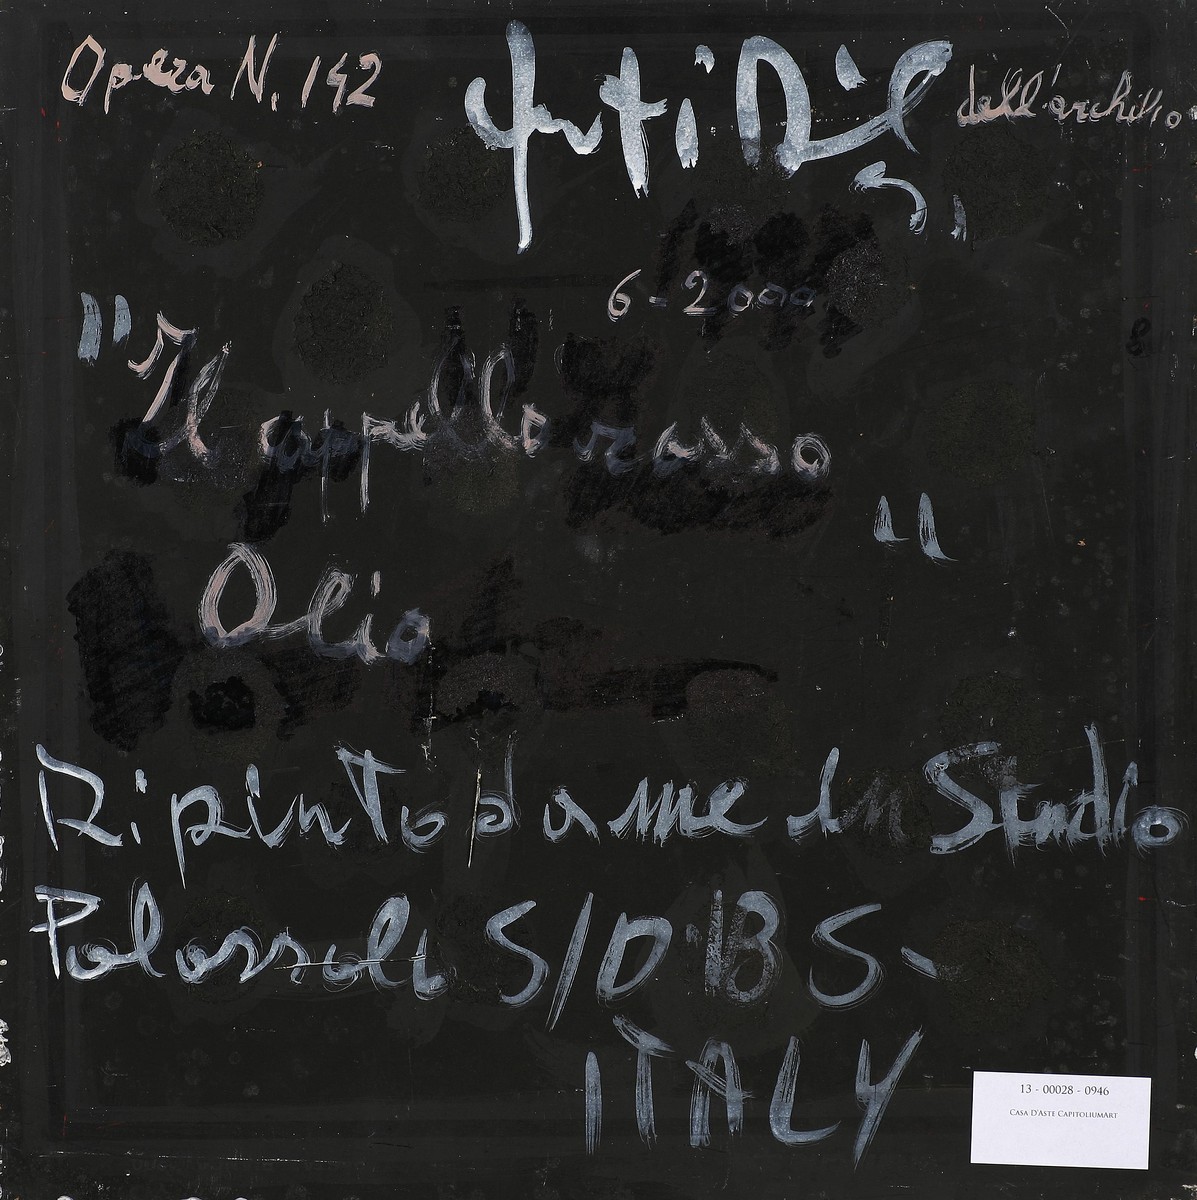 Opera N. 142
dell'archivio
6-2000
"Il cappello rosso"
Olio
Ripinto da me in Studio
Polossoli S/D BS-
ITALY
13 - 00028 - 0946
Casa D'Aste CapitoliumArt